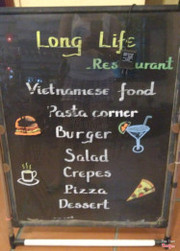 Long Life
Restaurant
Vietnamese food
Pasta corner
Burger
Salad
Crepes
Pizza
Dessert